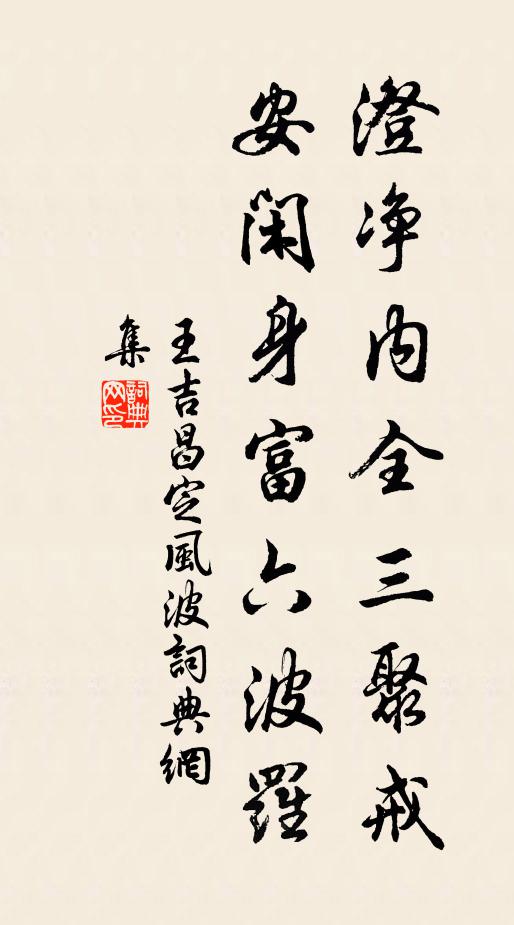 澄净内全三聚戒
安闲身富六波羅
王吉昌定風波詞典網
集
詞典
网印